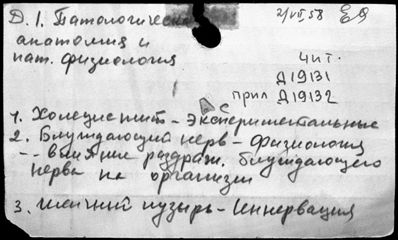 Д. 1. Патологическая
2/VII, 58
анатомия и
пат. физиология
Чит.
Д19131
прил Д19132
с
1. Холецистит - Экспериментальные
2. Блуждающий нерв - Физиология
-- влияние раздраж. блуждающего
нерва на организм
3. Желчный пузырь - Иннервация